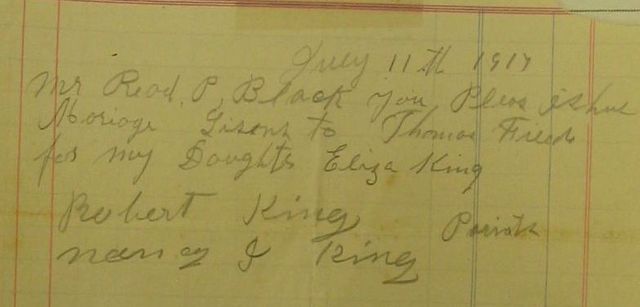 July 11th 1917
Mr Read. P. Black you Pleas ishue
Moriage Lisens to Thomas Freels
for my Doughts Eliza King
Robert King
Parints
nancy J King